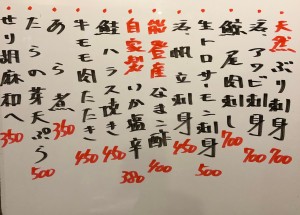 天然ぶり刺身 700
活アワビ刺身 700
鯨尾肉刺し 700
生トロサーモン刺身 500
活帆立刺身 450
能登産なまこ酢 400
自家製いか塩辛 380
鮭ハラス焼き 450
牛モモ肉たたき 450
あら煮 350
たらの芽天ぷら 500
せり胡麻和へ 350